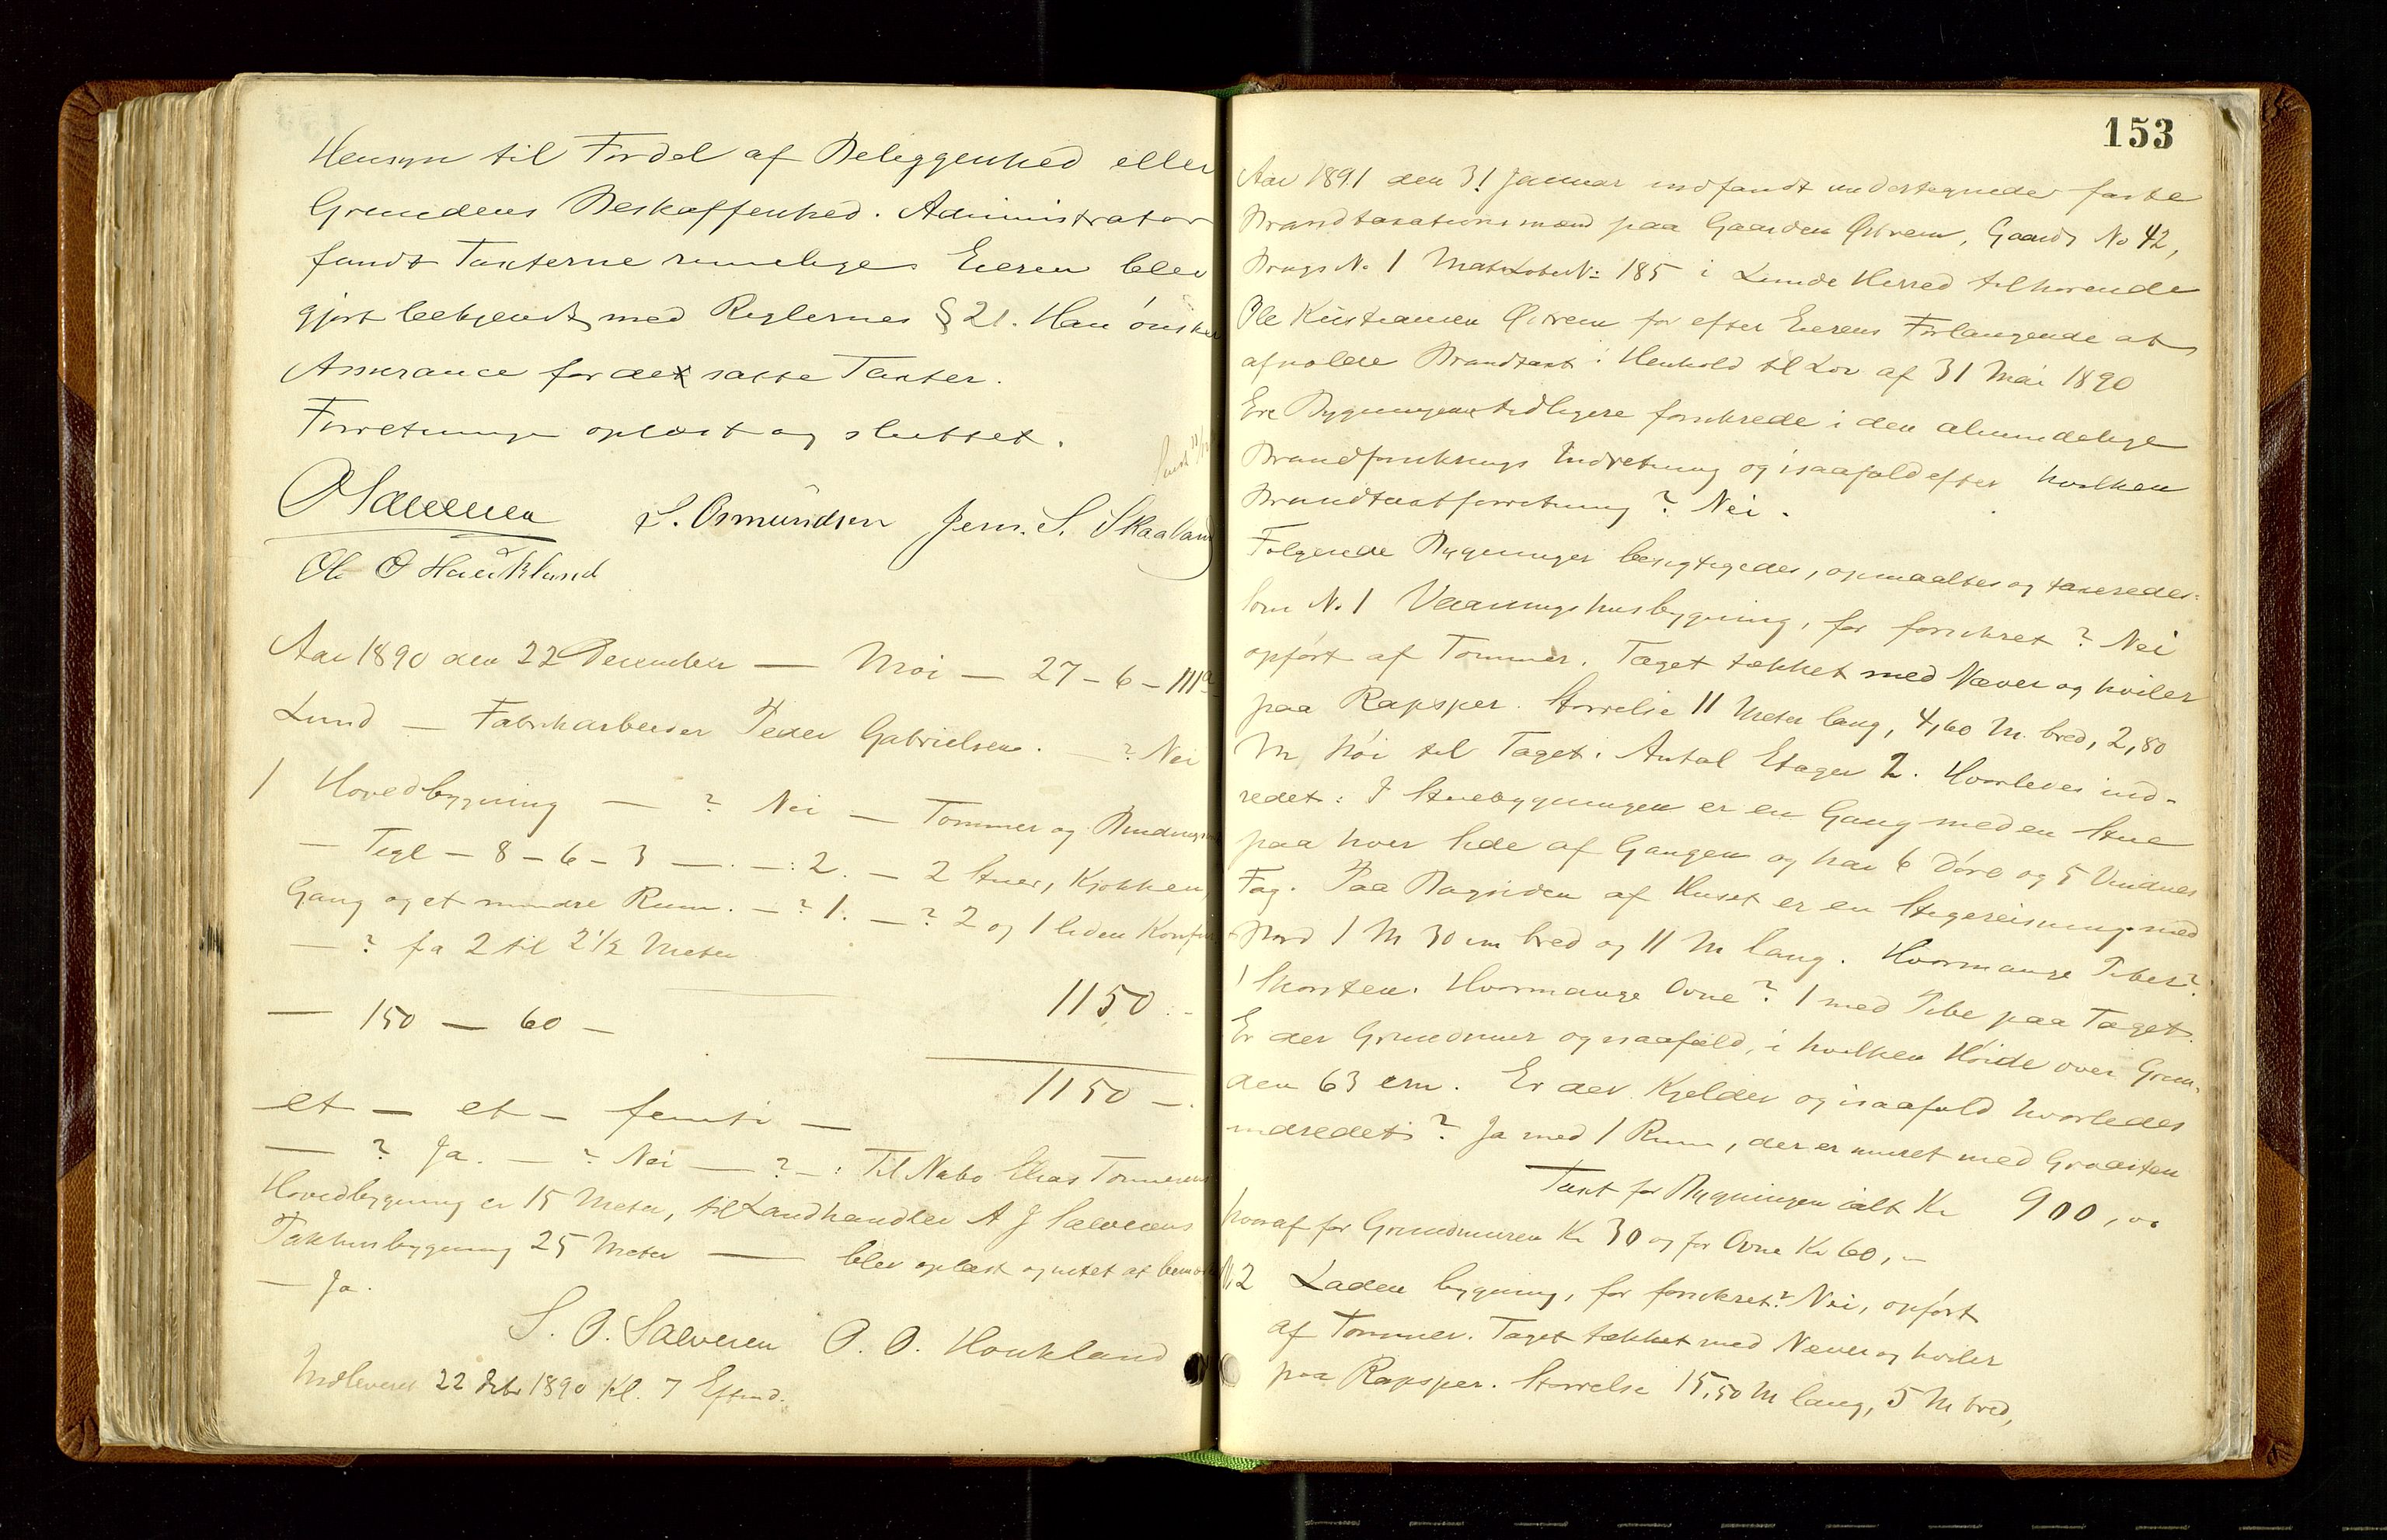 Hensyn til Fordel af Beliggenhed eller
Grundens Beskaffenhed. Administrator
fandt Taxterne rimelige. Eieren blev
gjort bekjendt med Reglernes § 21. Han önsker
Assurance for det satte Taxter.
Forretninge oplæst og sluttet.
S. Osmundsen Jens. S. Skaaland
Ole O Haukland
Aar 1890 den 22 December — Moi — 27 - 6 - IIIa
Lund — Fabrikarbeider Peder Gabrielsen. — ? Nei
1 Hovedbygning — ? Nei — Tømmer og Bindings
— Tegl — 8 — 6 — 3 — . — : 2. — 2 Stuer, Kjøkken,
Gang og et mindre Rum. — ? 1. — ? 2 og 1 liden Komfur
— ? fra 2 til 2 1/2 Meter
1150 . -
— 150 — 60 —
1150 — .
et — et — femti —
— ? Ja. — ? Nei — ? — : Til Nabo Elias Tønnesens
Hovedbygning er 15 Meter, til Landhandler A J Salvesens
Pakhusbygning 25 Meter — blev oplæst og intet at bemærke
— Ja.
S. O. Salvesen O. O. Houkland
Indleveret 22 Debr 1890 Kl. 7 Efterm.
153
Aar 1891 den 31 Januar indfandt undertegnede faste
Brandtaxationsmænd paa Gaarden Östrem, Gaards No 42,
Brugs N. 1 Mats Løbe N: 185 i Lunde Herred tilhørende
Ole Kristiansen Östrem for efter Eierens Forlangende at
afholde Brandtaxt i Henhold til Lov af 31 Mai 1890
Ere Bygningerne tidligere forsikrede i den almindelige
Brandforsikrings Indretning og isaafald efter hvilken
Brandtaxtforretning? Nei.
Følgende Bygninger besigtigedes, opmaaltes og taxeredes.
Som No 1 Vaaningshusbygning, før forsikret? Nei
opført af Tømmer. Taget tækket med Næver og hviler
paa Rapsper. Størrelse 11 Meter lang, 4,60 M. bred, 2,80
M. høi til Taget. Antal Etager 2. Hvorledes ind-
redet: I Stuebygningen er en Gang med en Stue
paa hver Side af Gangen og har 6 Døre og 5 Vindues
Fag. Paa Bagsiden af Huset er en Stegereisning med
Bord 1 M 30 cm bred og 11 M lang. Hvormange Piber?
1 Skorsten. Hvormange Ovne? 1 med Pibe paa Taget.
Er der Grundmur og isaafald, i hvilken Høide over Grun-
den 63 cm. Er der Kjelder og isaafald hvorledes
indredet? Ja med 1 Rum, der er muret med Graasten
Taxt for Bygningen ialt Kr 900,00
hvoraf for Grundmuren Kr 30 og for Ovne Kr 60,-
N.2 Laden bygning, før forsikret? Nei, opført
af Tømmer. Taget tækket med Næver og hviler
paa Rapsper. Størrelse 15,50 M lang, 5 M bred,